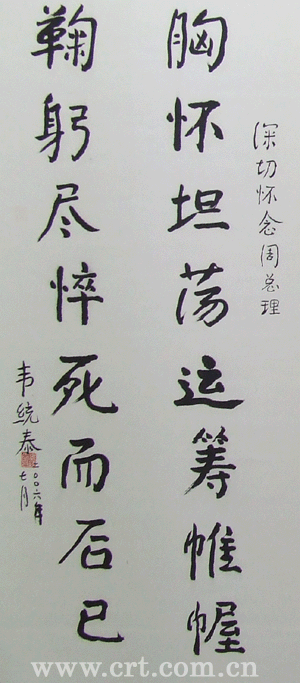 深切怀念周总理
胸怀坦荡运筹帷幄
鞠躬尽悴死而后已
韦统泰
二〇〇六年
七月
www.crt.com.cn